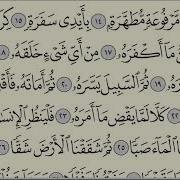 مَّرْفُوعَةٍ مُّطَهَّرَةٍۭ ١٤ بِأَيْدِى سَفَرَةٍ ١٥
مَآ أَكْفَرَهُۥ ١٧ مِنْ أَىِّ شَىْءٍ خَلَقَهُۥ ١٨
١٩ ثُمَّ ٱلسَّبِيلَ يَسَّرَهُۥ ٢٠ ثُمَّ أَمَاتَهُۥ
٢٢ كَلَّا لَمَّا يَقْضِ مَآ أَمَرَهُۥ ٢٣ فَلْيَنظُرِ
ٱلْمَآءَ صَبًّا ٢٥ ثُمَّ شَقَقْنَا ٱلْأَرْضَ شَقًّا ٢٦